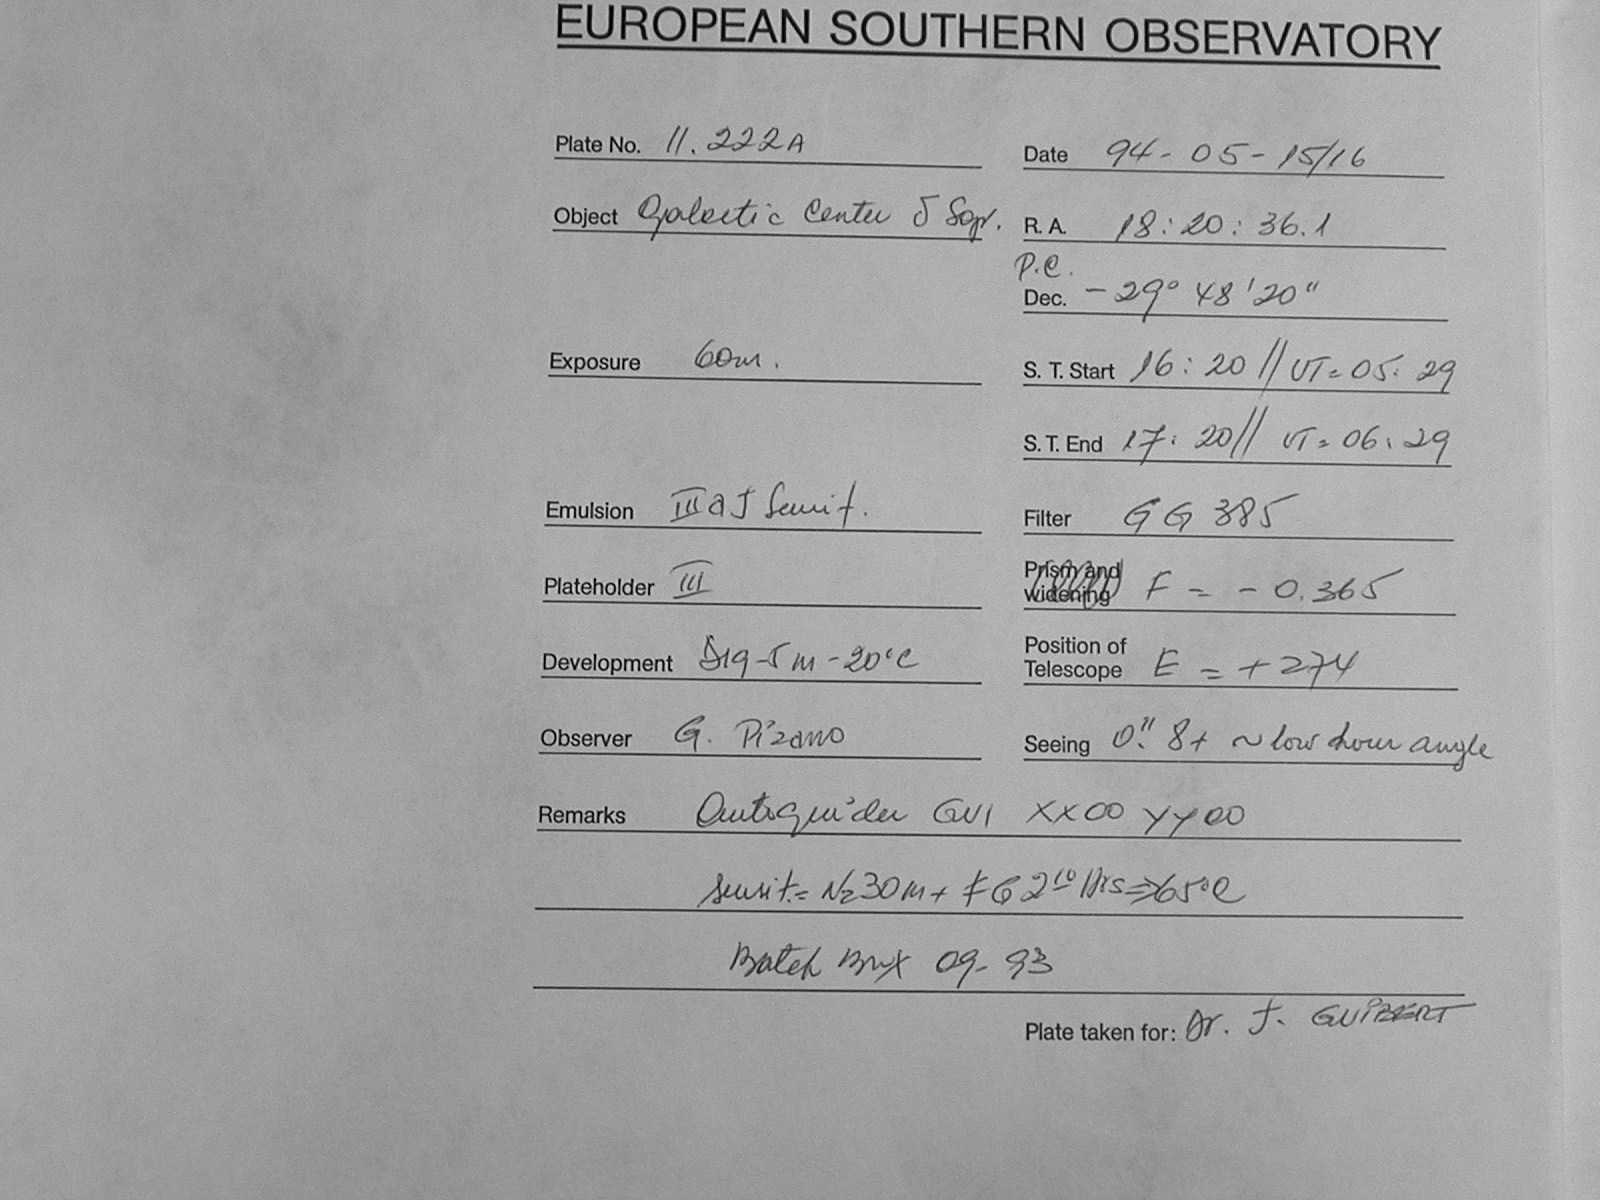 EUROPEAN SOUTHERN OBSERVATORY
Plate No. 11.222A
Date 94-05-15/16
Object Galactic Center δ Sgr.
R. A. 18:20:36.1
P.C.
Dec. -29° 48'20"
Exposure 60m.
S. T. Start 16:20 // UT=05:29
S. T. End 17:20 // UT=06:29
Emulsion III a J Sensit.
Filter GG 385
Plateholder III
Prism and widening F = -0.365
Development D19-5m-20°C
Position of Telescope E = +274
Observer G. Pizarro
Seeing 0".8+ ~low hour angle
Remarks Autoguider GU1 XX00 YY00
Sensit.= N2 30m + FG 2 10 Hrs => 65°C
Batch 09-93
Plate taken for: Dr. J. GUIBERT